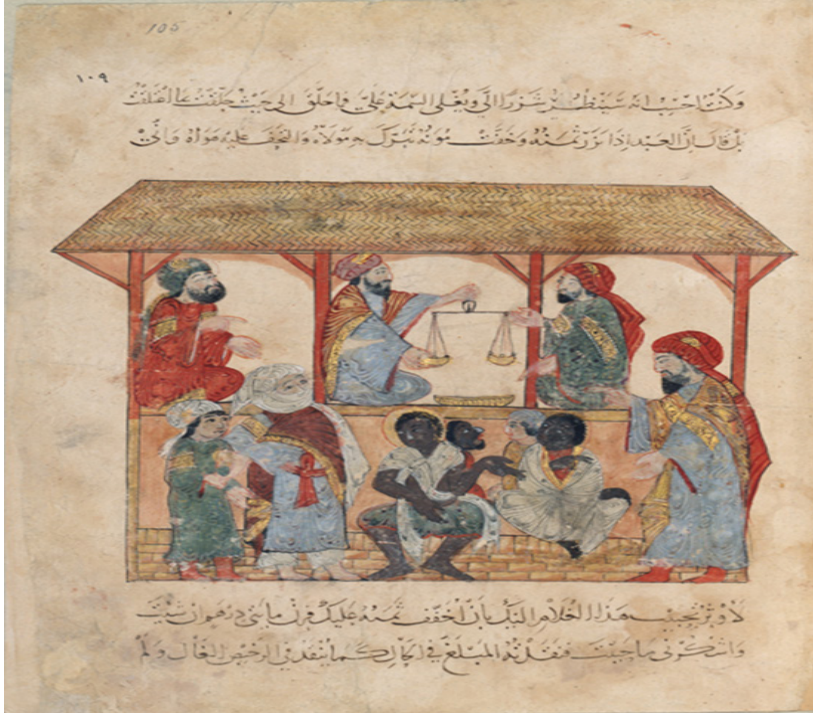 105
١٠٩
وكنت احسب انه سينظر شزرا الي ويغلي السيمة علي فما حلق الى حيث حلقت اعتلقت
بل قال ان العبد اذا نزر ثمنه وخفت مونه تبرك به مولاه والتحف عليه هواه واني
لاوثر تحبيب هذا الغلام اليك بان اخفف ثمنه عليك فزن مائتي درهم ان شئت
واشكر لي ما حييت فنقدته المبلغ في الحال كما ينقد في الرخيص الغال ولم